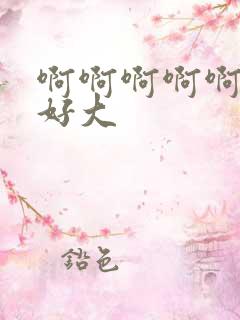 啊啊啊啊啊
好大
铅色